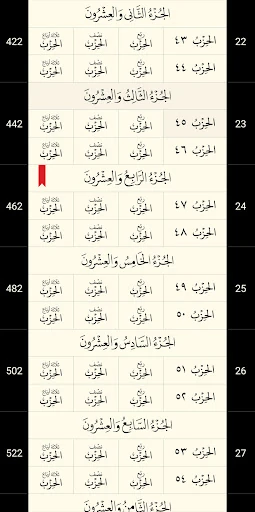 الجُزْءُ الثَّانِي وَالْعِشْرُونَ
22 الحِزْبُ ٤٣ رُبْعُ الحِزْبِ نِصْفُ الحِزْبِ ثَلَاثَةُ أَرْبَاعِ الحِزْبِ 422
الحِزْبُ ٤٤ رُبْعُ الحِزْبِ نِصْفُ الحِزْبِ ثَلَاثَةُ أَرْبَاعِ الحِزْبِ
الجُزْءُ الثَّالِثُ وَالْعِشْرُونَ
23 الحِزْبُ ٤٥ رُبْعُ الحِزْبِ نِصْفُ الحِزْبِ ثَلَاثَةُ أَرْبَاعِ الحِزْبِ 442
الحِزْبُ ٤٦ رُبْعُ الحِزْبِ نِصْفُ الحِزْبِ ثَلَاثَةُ أَرْبَاعِ الحِزْبِ
الجُزْءُ الرَّابِعُ وَالْعِشْرُونَ
24 الحِزْبُ ٤٧ رُبْعُ الحِزْبِ نِصْفُ الحِزْبِ ثَلَاثَةُ أَرْبَاعِ الحِزْبِ 462
الحِزْبُ ٤٨ رُبْعُ الحِزْبِ نِصْفُ الحِزْبِ ثَلَاثَةُ أَرْبَاعِ الحِزْبِ
الجُزْءُ الخَامِسُ وَالْعِشْرُونَ
25 الحِزْبُ ٤٩ رُبْعُ الحِزْبِ نِصْفُ الحِزْبِ ثَلَاثَةُ أَرْبَاعِ الحِزْبِ 482
الحِزْبُ ٥٠ رُبْعُ الحِزْبِ نِصْفُ الحِزْبِ ثَلَاثَةُ أَرْبَاعِ الحِزْبِ
الجُزْءُ السَّادِسُ وَالْعِشْرُونَ
26 الحِزْبُ ٥١ رُبْعُ الحِزْبِ نِصْفُ الحِزْبِ ثَلَاثَةُ أَرْبَاعِ الحِزْبِ 502
الحِزْبُ ٥٢ رُبْعُ الحِزْبِ نِصْفُ الحِزْبِ ثَلَاثَةُ أَرْبَاعِ الحِزْبِ
الجُزْءُ السَّابِعُ وَالْعِشْرُونَ
27 الحِزْبُ ٥٣ رُبْعُ الحِزْبِ نِصْفُ الحِزْبِ ثَلَاثَةُ أَرْبَاعِ الحِزْبِ 522
الحِزْبُ ٥٤ رُبْعُ الحِزْبِ نِصْفُ الحِزْبِ ثَلَاثَةُ أَرْبَاعِ الحِزْبِ
الجُزْءُ الثَّامِنُ وَالْعِشْرُونَ